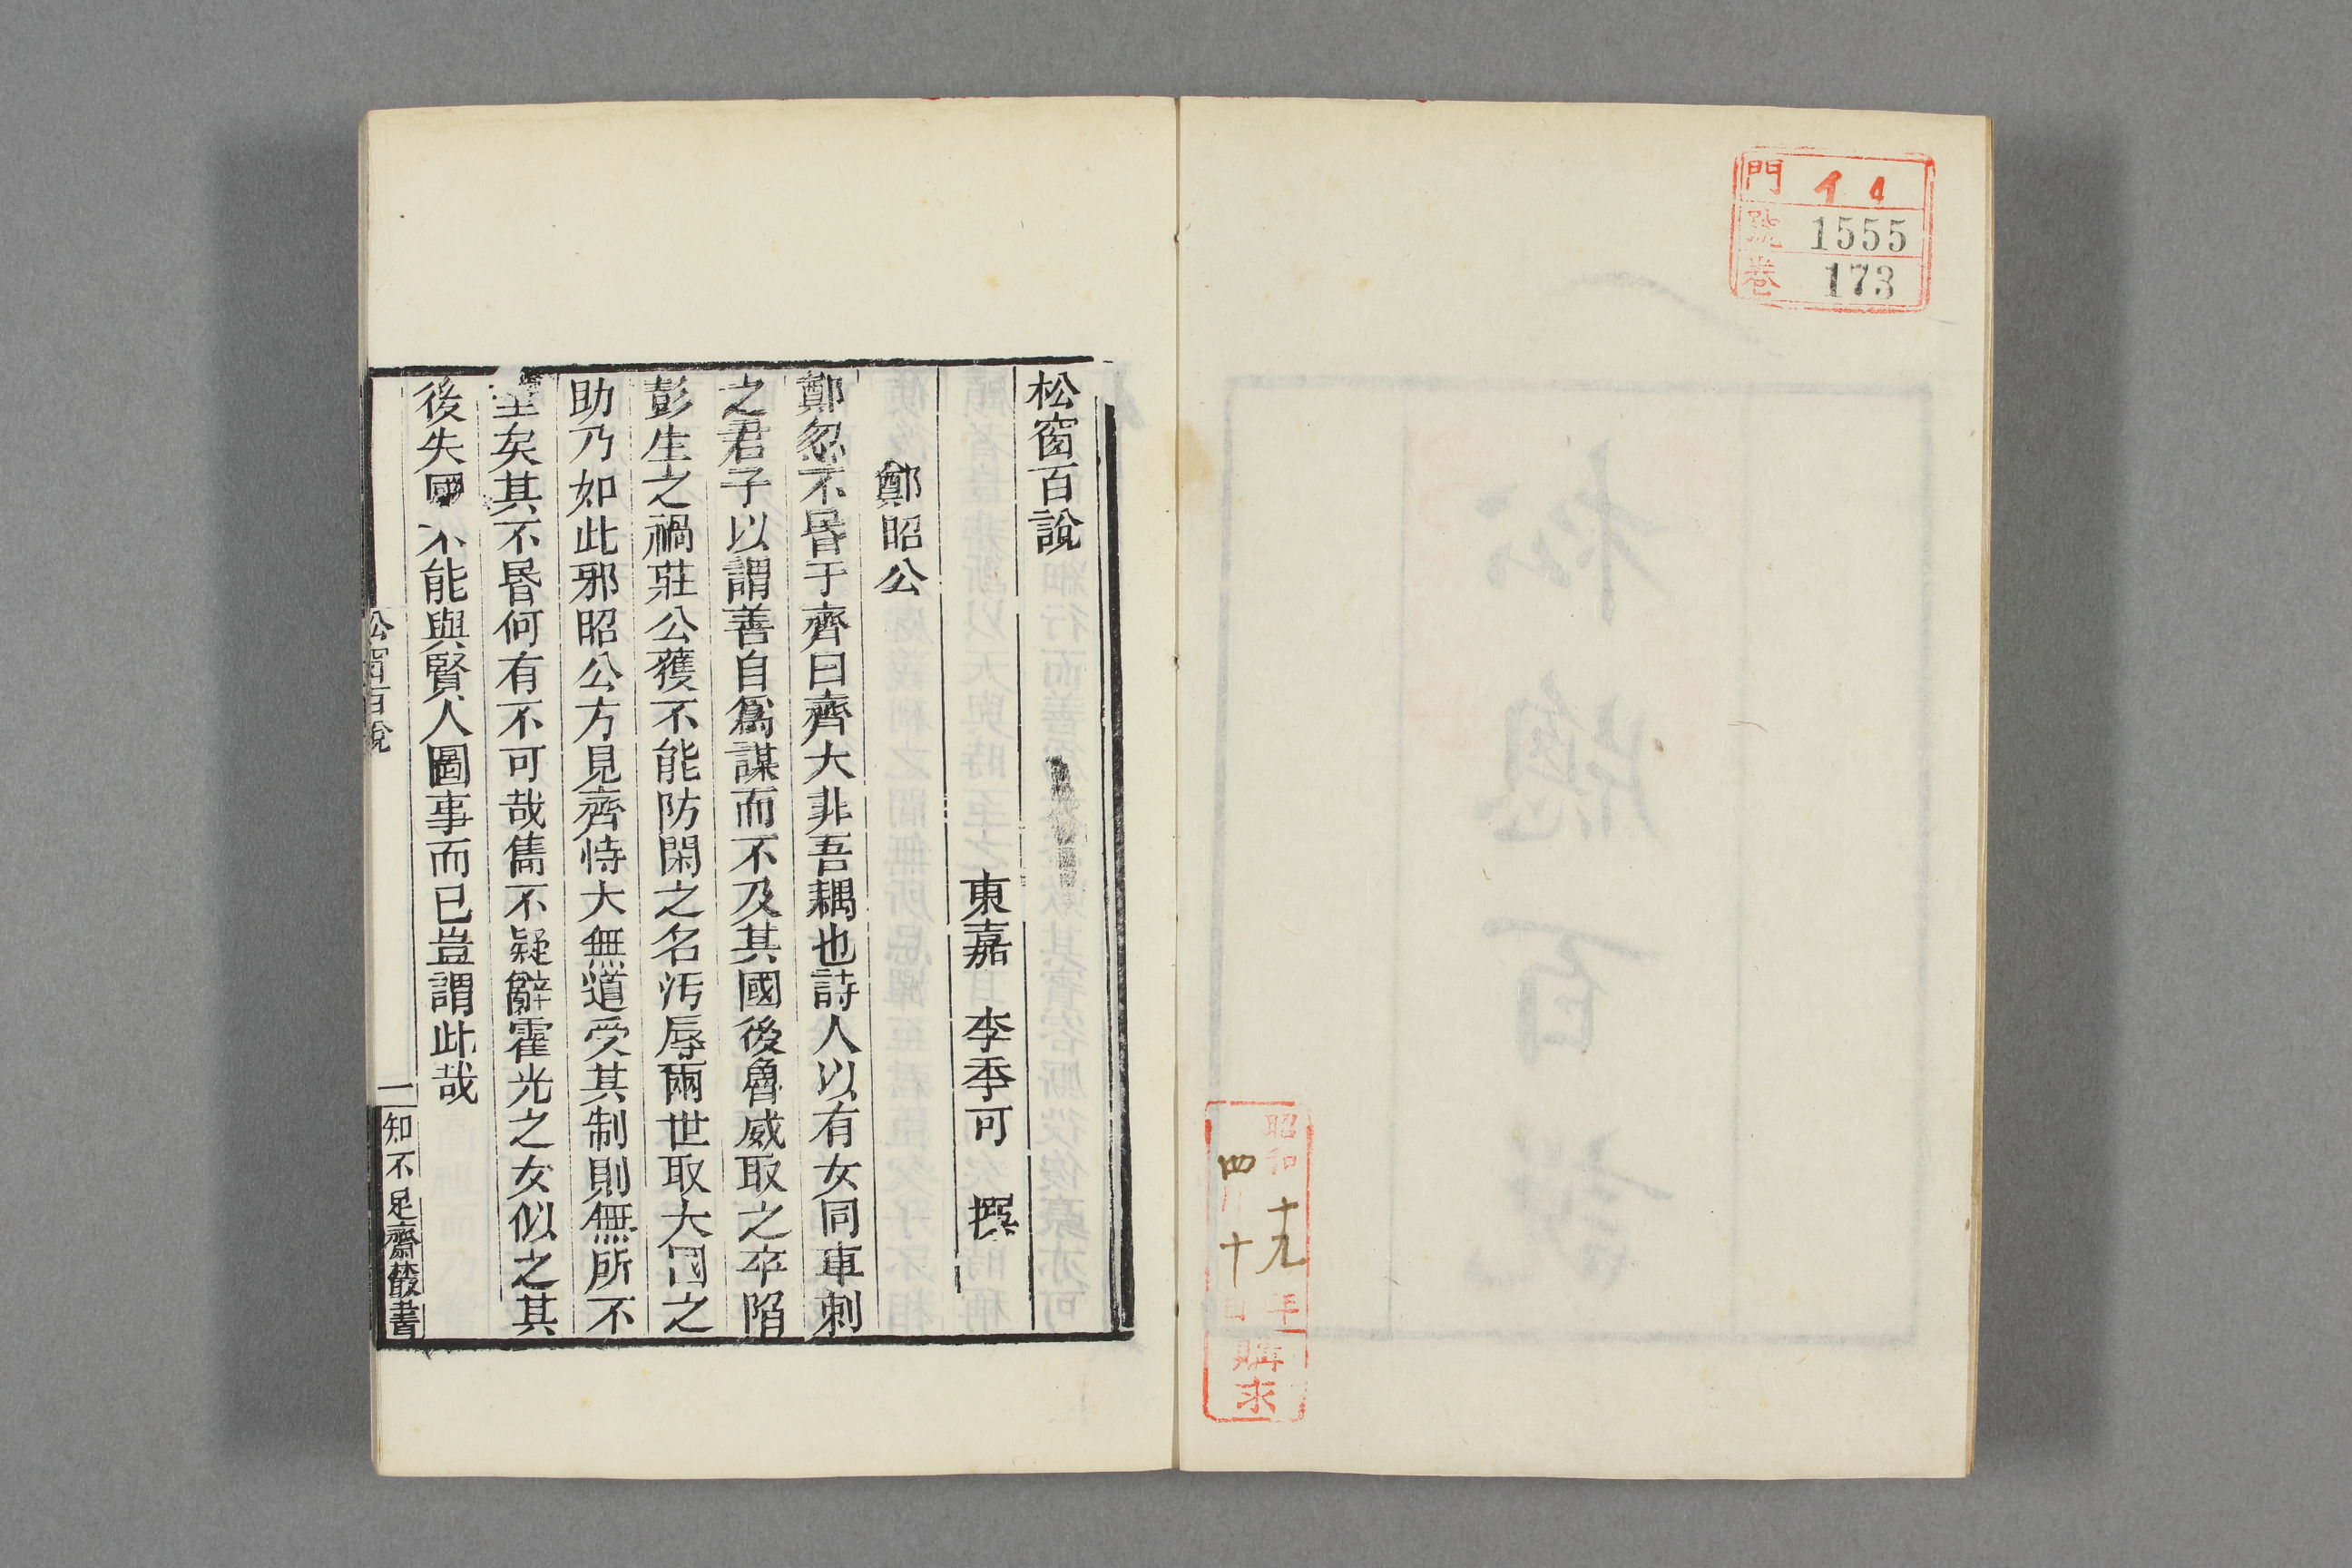 門 イ 4
號 1555
卷 173
昭和十九年
四月十日
購求
松窗百說
東嘉 李季可 撰
鄭昭公
鄭忽不昬于齊曰齊大非吾耦也詩人以有女同車刺
之君子以謂善自爲謀而不及其國後魯威取之卒陷
彭生之禍莊公獲不能防閑之名汚辱兩世取大国之
助乃如此邪昭公方見齊恃大無道受其制則無所不
至矣其不昬何有不可哉雋不疑辭霍光之女似之其
後失國不能與賢人圖事而已豈謂此哉
松窗百說 一 知不足齋叢書